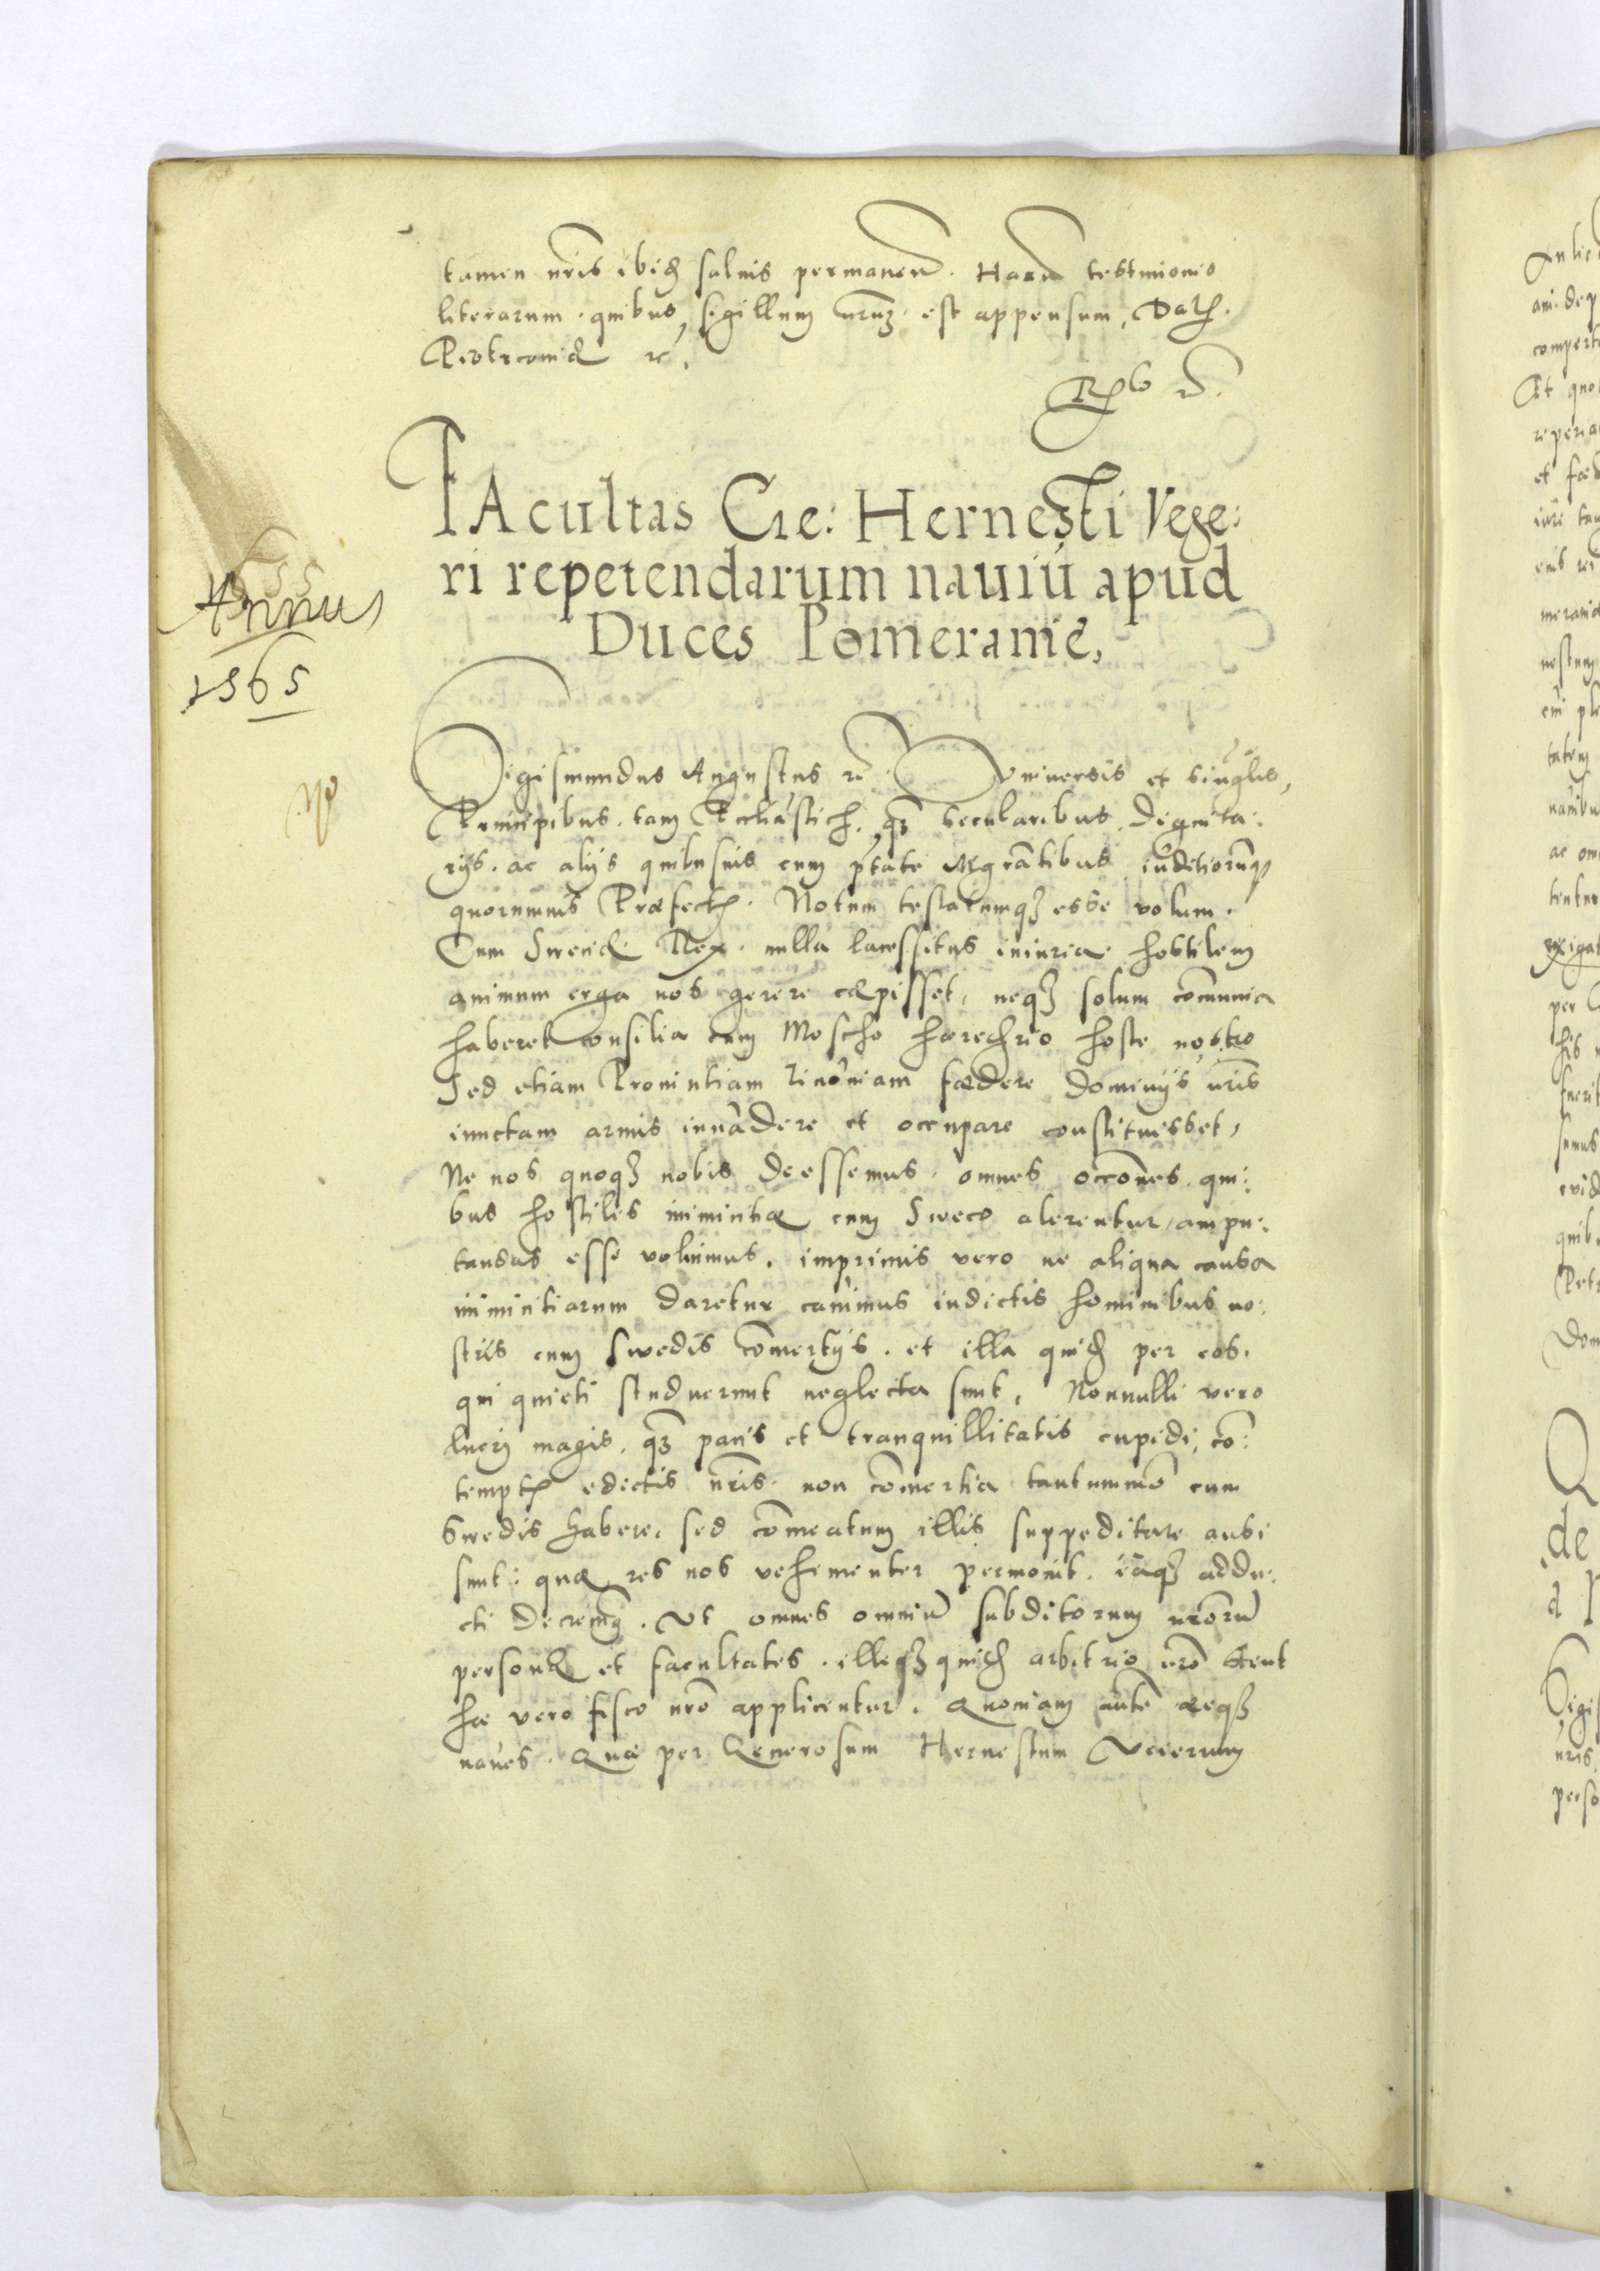 tamen nr̃is ibid. saluis permanen̄. Harū testimonio
literarum. quibus sigillum nr̃uꝫ est appensum, Dat.
Petricouię &c.
Annus
1565
FAcultas Gre: Hernesti Vege:
ri repetendarum nauiū apud
Duces Pomeranię,
Sigismundus Augustus &c. Vniuersis et singulis,
Principibus. tam Ecclīasticis. qꝫ secularibus. Dignita:
rijs. ac alijs quibusuis cum p̄tate migrāntibus iuditiorūqꝫ
quorumuis Præfectis. Notum testatumqꝫ esse volum.
Cum Sweciæ Rex. nulla lacessitus iniuria hostilem
animum erga nos gerere cæpisset, neqꝫ solum cōmunia
haberet consilia cum Moscho hæreditrio hoste nostro
Sed etiam Prouintiam Liuoniam fædere Dominijs nr̃is
iunctam armis inuadere et occupare constituisset,
Ne nos quoqꝫ nobis deessemus. omnes occōnes. qui:
bus hostiles inimicitiæ cum Sweco alerentur, ampu:
tandas esse voluimus. imprimis vero ne aliqua causa
inimicitiarum daretur cauimus indictis hominibus no:
stris cum Swedis cōmertijs. et illa quid. per eos.
qui quieti studuerunt neglecta sunt. Nonnulli vero
lucrij magis. qꝫ pacis et tranquillitatis cupidi, cō:
temptis edictis nr̃is. non cōmertia tantummō cum
Swedis habere. sed cōmeatum illis suppeditare ausi
sunt: quæ res nos vehementer permouit. eaqꝫ addu:
cti decreuimus. Vt omnes omniū subditorum nrōrū
personæ et facultates. illeqꝫ quid. arbitrio nrō stent
hæ vero fisco nrō applicentur. Quoniam aute aeqꝫ
naues. quæ per Generosum Hernestum Veierum